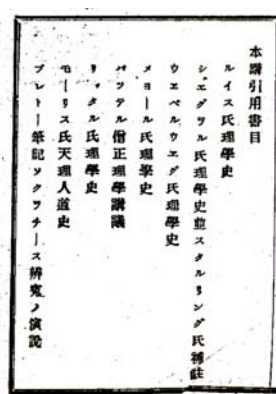 本講引用書目
ルイス氏理學史
シュエグツル氏理學史並スタルリング氏補註
ウエベルウエグ氏理學史
メヨール氏理學史
バツテル僧正理學講議
リッタル氏理學史
モーリス氏天理人道史
プレトー筆記ソクラチース辨冤ノ演説